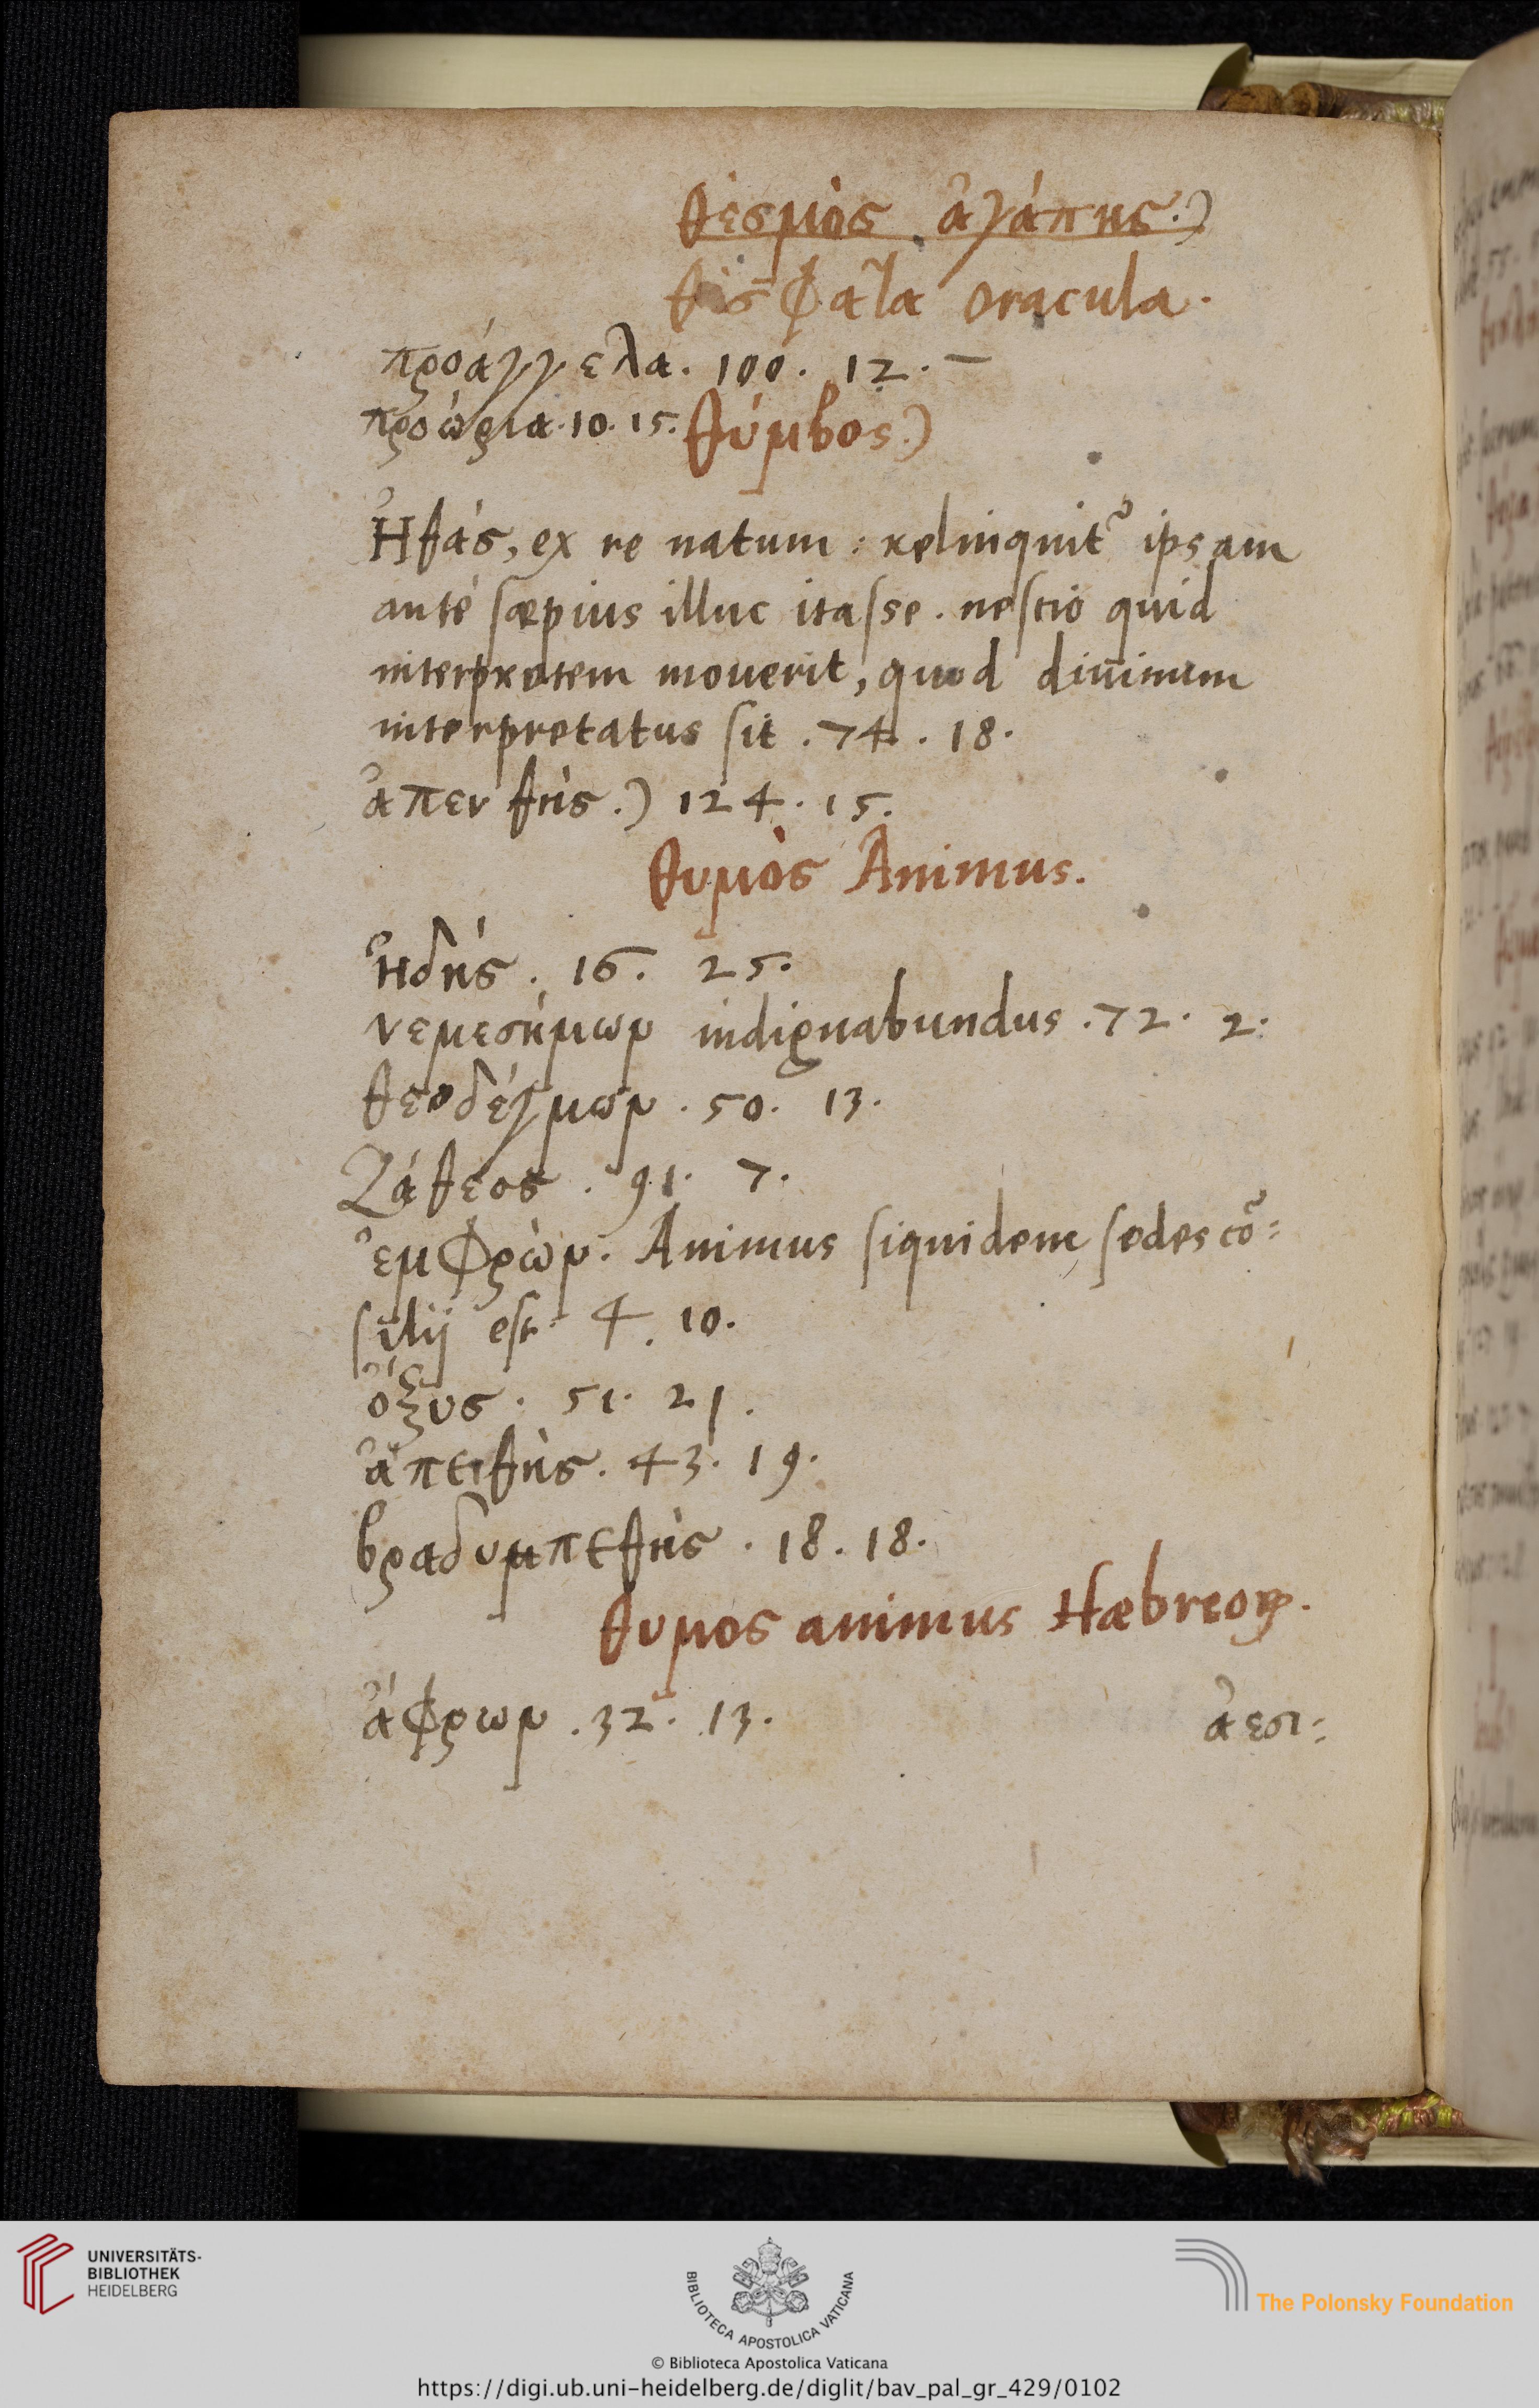 θεσμὸς ἀγάπης.)
θέσφατα oracula.
προάγγελα. 100. 12. –
προώρια. 10. 15. θύμβος.)
Ἠθάς, ex re natum: relinquit᷑ ipsam
antè sæpius illuc itasse. nescio quid
interpretem mouerit, quod diuinum
interpretatus sit. 74. 18.
ἀπενθὴς.) 124. 15.
θυμὸς Animus.
ἠδής. 16. 25.
νεμεσήμων indignabundus. 72. 2.
θεοδέγμων. 50. 13.
Ζάθεος. 91. 7.
ἐμφρὼν. Animus siquidem sedes cõ=
silij est 4. 10.
ὄξυς. 51. 21.
ἀπειθὴς. 43. 19.
βραδυμπεθὴς. 18. 18.
θυμος animus Hæbreoꝝ.
ἄφρων. 32. 13. ἀεσι=
UNIVERSITÄTS-
BIBLIOTHEK
HEIDELBERG
BIBLIOTECA APOSTOLICA VATICANA
The Polonsky Foundation
© Biblioteca Apostolica Vaticana
https://digi.ub.uni-heidelberg.de/diglit/bav_pal_gr_429/0102